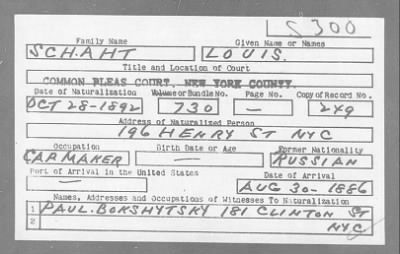 S 300
Family Name Given Name or Names
SCHAHT LOUIS.
Title and Location of Court
COMMON PLEAS COURT, NEW YORK COUNTY.
Date of Naturalization Volume or Bundle No. Page No. Copy of Record No.
OCT 28-1892 730 — 249
Address of Naturalized Person
196 HENRY ST NYC
Occupation Birth Date or Age Former Nationality
CAPMAKER — RUSSIAN
Port of Arrival in the United States Date of Arrival
— AUG 30-1886
Names, Addresses and Occupations of Witnesses To Naturalization
1 PAUL. BOKSHYTSKY 181 CLINTON ST
2 NYC